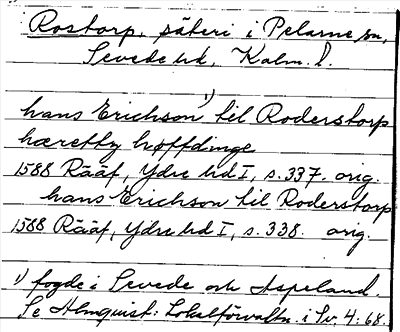 Rostorp, säteri i Pelarne sn,
Sevede hd, Kalm. l.
hans Erichson ¹) til Roderstorp
hæretby høffdinge
1588 Rääf, Ydre hd I, s. 337. orig.
hans Erichson til Roderstorp
1588 Rääf, Ydre hd I, s. 338. orig.
¹) fogde i Sevede och Aspeland.
Se Almquist: Lokalförvaltn. i Sv. 4:68.